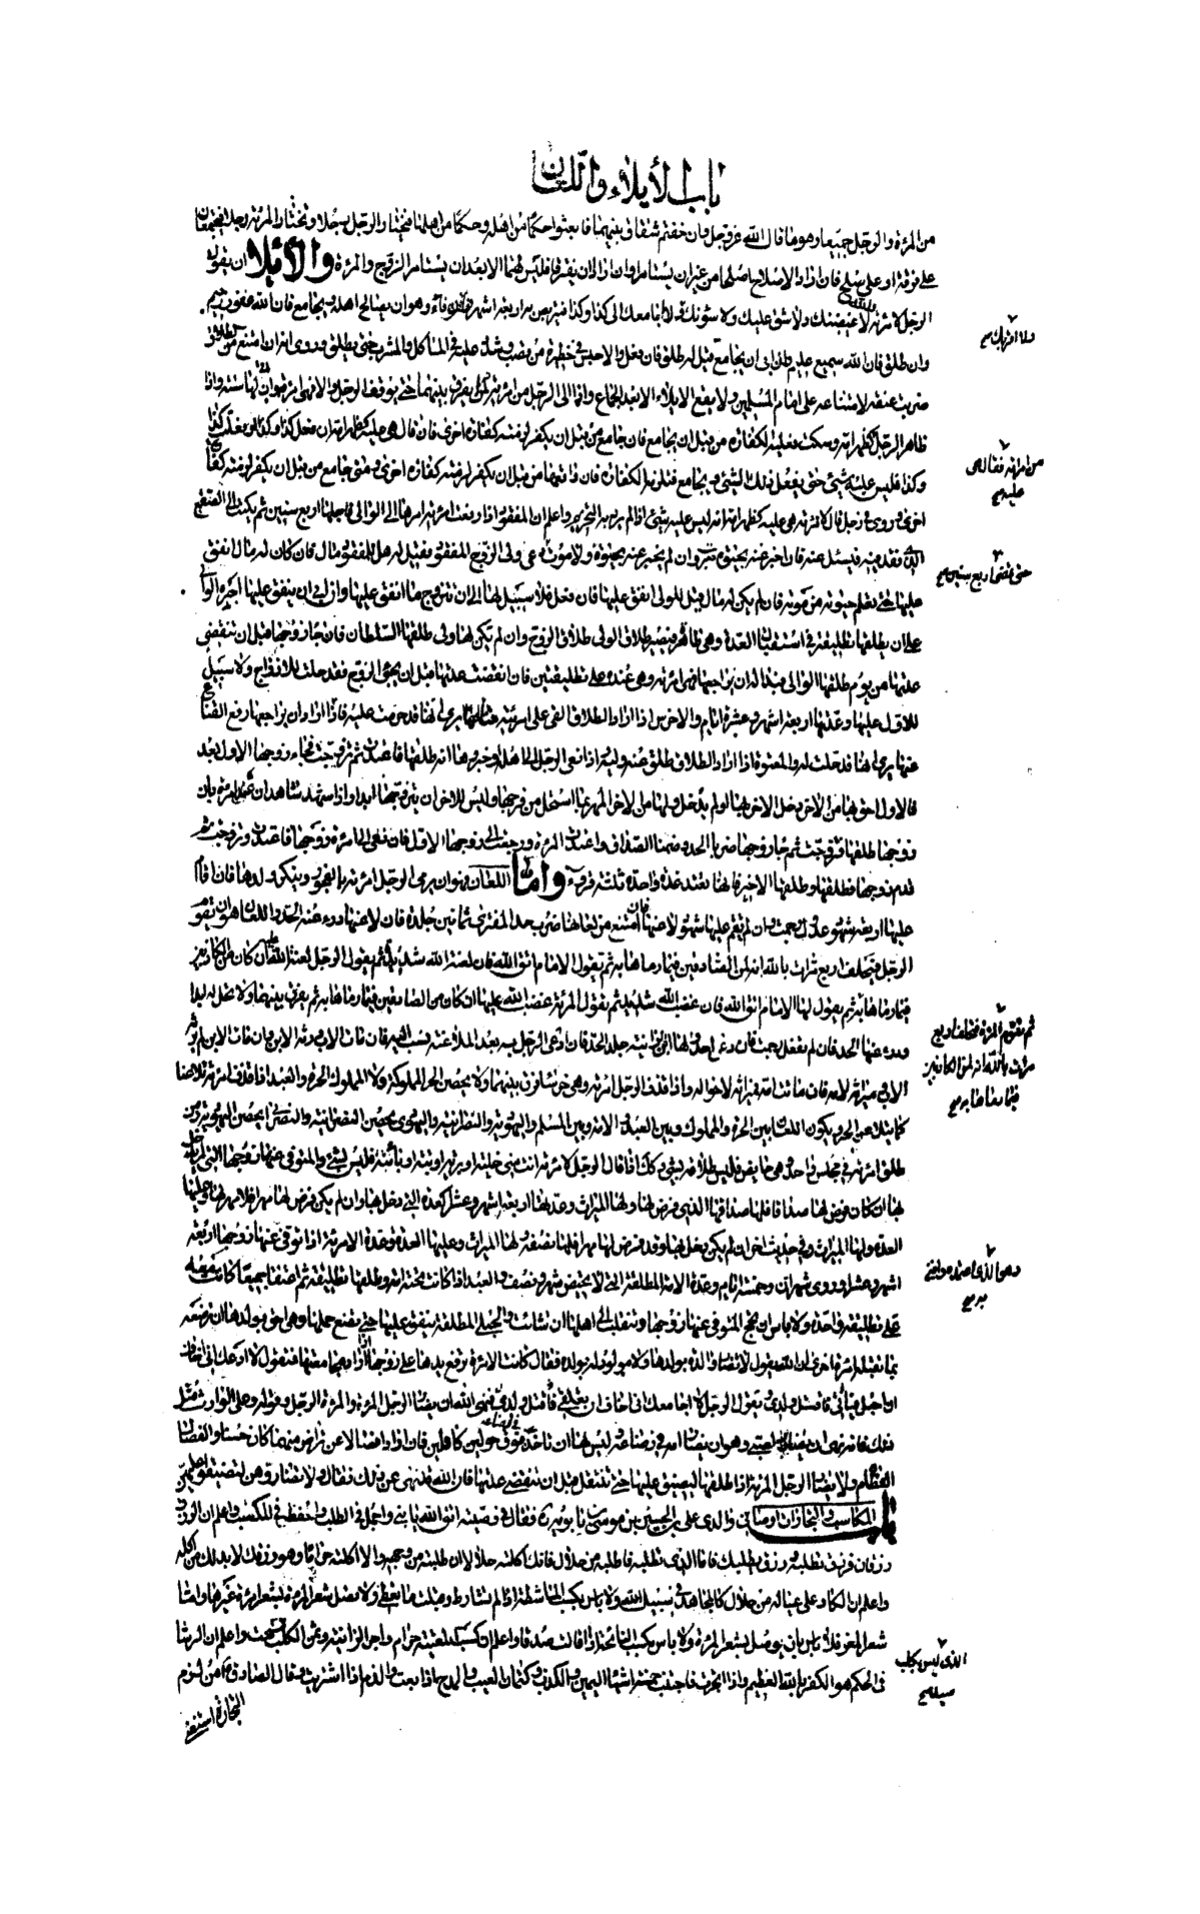 باب الأيلاء واللعان
من المرءة والرجل جميعا وهو ما قال الله عز وجل فان خفتم شقاق بينهما فابعثوا حكما من اهله وحكما من اهلها فيختار الرجل رجلا وتختار المرءة رجلا فيجتمعان
على فرقة او على صلح فان اراد الاصلاح اصلحا من غير ان يستامرا وان ارادا ان يفرقا فليس لهما الا بعد ان يستامرا الزوج والمرءة والأيلاء ان يقول
الرجل لامرئته والله لاغيضنك ولاشق عليك ولاسوئنك ولا اجامعك الى كذا وكذا فيتربص به اربعة اشهر فان فاء وهو ان يصالح اهله ويجامع فان الله غفور رحيم
ولا اقربك صح
وان طلق فان الله سميع عليم وان ابى ان يجامع قيل له طلق فان فعل والا حبس في حظيرة من قصب وشدد عليه في المأكل والمشرب حتى يطلق وروى انه ان امتنع من الطلاق
ضربت عنقه لامتناعه على امام المسلمين ولا يقع الايلاء الا بعد الجماع واذا الى الرجل من امرئته فليس يفرق بينهما حتى يوقف الرجل والا فهى امرئته وان اتى لها سنة واذا
ظاهر الرجل كظهر امه وسكت فعليه الكفارة من قبل ان يجامع فان جامع من قبل ان يكفر لزمته كفارة اخرى فان قال هى عليه كظهر امه ان فعل كذا وكذا او يفعل كذا
من امرئته فقال هى
عليه صح
وكذا فليس عليه شيئ حتى يفعل ذلك الشيئ ويجامع فتلزمه الكفارة فان واقعها من قبل ان يكفر لزمته كفارة اخرى ومتى جامع من قبل ان يكفر لزمته كفارة
اخرى وروى في رجل قال لامرئته هى عليه كظهر امه انه ليس عليه شيئ اذا لم يرد به التحريم واعلم ان المفقود اذا رفعت امرئته امرها الى الوالى فاجلها اربع سنين ثم يكتب الى الصقع
الذى فقد فيه فيسئل عنه فان اخبر عنه بحيوة صبرت وان لم يخبر عنه بحيوة ولا موت دعى ولى الزوج المفقود فقيل له هل للمفقود مال فان كان له مال انفق
حتى تمضى اربع سنين صح
عليها حتى تعلم حيوته من موته فان لم يكن له مال قيل للولى انفق عليها فان فعل فلا سبيل لها الى ان تتزوج ما انفق عليها وان ابى ان ينفق عليها اجبره الوالى
على ان يطلقها تطليقة في استقبال العدة وهى طاهر فيصير طلاق الولى طلاق الزوج وان لم يكن لها ولى طلقها السلطان فان جاء زوجها قبل ان تنقضى
عدتها من يوم طلقها الوالى فبدا له ان يراجعها فهى امرئته وهى عنده على تطليقتين فان انقضت عدتها قبل ان يجئ الزوج فقد حلت للازواج ولا سبيل
للاول عليها وعدتها اربعة اشهر وعشرة ايام والاخرس اذا اراد الطلاق القى على امرئته قناعها يرى انها قد حرمت عليه فاذا اراد ان يراجعها رفع القناع
عنها يرى انها قد حلت له والمعتوه اذا اراد الطلاق طلق عنه وليه واذا نعى الرجل الى اهله او خبروها انه طلقها فاعتدت ثم تزوجت فجاء زوجها الاول بعد
فالاول احق بها من الاخر دخل الاخر بها او لم يدخل ولها من الاخر المهر بما استحل من فرجها وليس للاخر ان يتزوجها ابدا واذا شهد شاهدان عند امرئة بان
زوجها طلقها فتزوجت ثم جاء زوجها ضربا الحد وضمنا الصداق واعتدت المرءة ورجعت الى زوجها الاول فان نعى الى امرئة زوجها فاعتدت وتزوجت ثم
قدم زوجها فطلقها وطلقها الاخير فانها تعتد عدة واحدة ثلثة قروء واما اللعان فهو ان يرمى الرجل امرئته بالفجور وينكر ولدها فان اقام
عليها اربعة شهود عدول رجمت وان لم يقم عليها شهود لاعنها فان امتنع من لعانها ضرب حد المفترى ثمانين جلدة فان لاعنها درء عنه الحد واللعان هو ان يقوم
الرجل فيحلف اربع مرات بالله انه لمن الصادقين فيما رماها به ثم يقول له الامام اتق الله فان لعنة الله شديدة ثم يقول الرجل لعنة الله عليه ان كان من الكاذبين
فيما رماها به ثم يقول لها الامام اتق الله فان غضب الله شديد ثم تقول المرئة غضب الله عليها ان كان من الصادقين فيما رماها به ثم يفرق بينهما ولا تحل له ابدا
ثم تقوم المرءة فتحلف اربع
مرات بالله انه لمن الكاذبين
فيما رماها به صح
ودرء عنها الحد فان لم تفعل رجمت فان دعى احد ولدها ابن الزانية جلد الحد فان ادعى الرجل الولد بعد الملاعنة نسب اليه فان مات الاب ورثه الابن وان مات الابن لم يرثه
الاب ميراثه لامه فان ماتت امه فميراثه لاخواله واذا قذف الرجل امرئته وهى خرساء فرق بينهما ولا يحصن الحر المملوكة ولا المملوك الحرة والعبد اذا قذف امرئته تلاعنا
كما يتلاعن الحر ويكون اللعان بين الحرة والمملوك وبين العبد والامة وبين المسلم واليهودية والنصرانية واليهودى يحصن النصرانية والنصرانى يحصن اليهودية ومن
طلق امرئته في مجلس واحد وهى حايض فليس طلاقه بشيئ وكذا اذا قال الرجل لامرئته انت منى خلية او برية او بتة او بائنة فليس بشيئ والمتوفى عنها زوجها التى لم يدخل
بها ان كان فرض لها صداقا فلها صداقها الذى فرض لها ولها الميراث وعدتها اربعة اشهر وعشرا كعدة التى دخل بها وان لم يكن فرض لها مهر فلا مهر لها وعليها
العدة ولها الميراث وفي حديث اخر ان لم يكن دخل بها وقد فرض لها مهرا فلها نصفه ولها الميراث وعليها العدة وعدة الامة اذا توفى عنها زوجها اربعة
اشهر وعشرا وروى شهران وخمسة ايام وعدة الامة المطلقة التى لا تحيض شهر ونصف والعبد اذا كانت تحته امة وطلقها تطليقة ثم اعتقا جميعا كانت عنده
وهو الذى اعتمده وافتى
به صح
على تطليقة واحدة ولا باس ان تحج المتوفى عنها زوجها وتنقلب الى اهلها ان شائت والحبلى المطلقة ينفق عليها حتى تضع حملها وهى احق بولدها ان ترضعه
بما تقبله امرئة اخرى ان الله يقول لا تضار والدة بولدها ولا مولود له بولده فقال كانت الامرئة ترفع يدها على زوجها اذا اراد مجامعتها فتقول لا ادعك انى اخاف
ان احبل فيأتى فاقتل ولدى ويقول الرجل لا اجامعك انى اخاف ان تعلقى فاقتل ولدى فنهى الله ان يضار الرجل المرءة والمرءة الرجل وقوله وعلى الوارث مثل
ذلك فانه نهى ان يضار بالصبى وهو ان يضار امه في رضاعه وليس لها ان تاخذ في رضاعه فوق حولين كاملين فان اراد فصالا عن تراض منهما كان حسنا والفصال
الفطام ولا يضار الرجل المرئة اذا طلقها ليضيق عليها حتى تنتقل قبل ان تنقضى عدتها فان الله قد نهى عن ذلك فقال ولا تضاروهن لتضيقوا عليهن
باب المكاسب والتجارات اوصانى والدى على بن الحسين بن موسى بن بابويه ره فقال في وصيته اتق الله يا بنى واجمل في الطلب واخفظ في المكسب واعلم ان الرزق
رزقان فرزق تطلبه ورزق يطلبك فاما الذى تطلبه فاطلبه من حلال فانك اكلته حلالا ان طلبته من وجهه والا اكلته حراما وهو رزقك لا بد لك من اكله
واعلم ان الكاد على عياله من حلال كالمجاهد في سبيل الله ولا باس بكسب الماشطة اذا لم تشارط وقبلت ما تعطى ولا تصل شعر المرءة بشعر امرءة غيرها واما
شعر المعز فلا باس بان يوصل بشعر المرءة ولا باس بكسب النائحة اذا قالت صدقا واعلم ان كسب المغنية حرام واجر الزانية وثمن الكلب سحت واعلم ان الرشا
الذى ليس بكلب
صيد صح
في الحكم هو الكفر بالله العظيم واذا اتجرت فاجتنب خمسة اشياء اليمين والكذب وكتمان العيب والمدح اذا بعت والذم اذا اشتريت وقال الصادق ع من لزم
التجارة استغنى